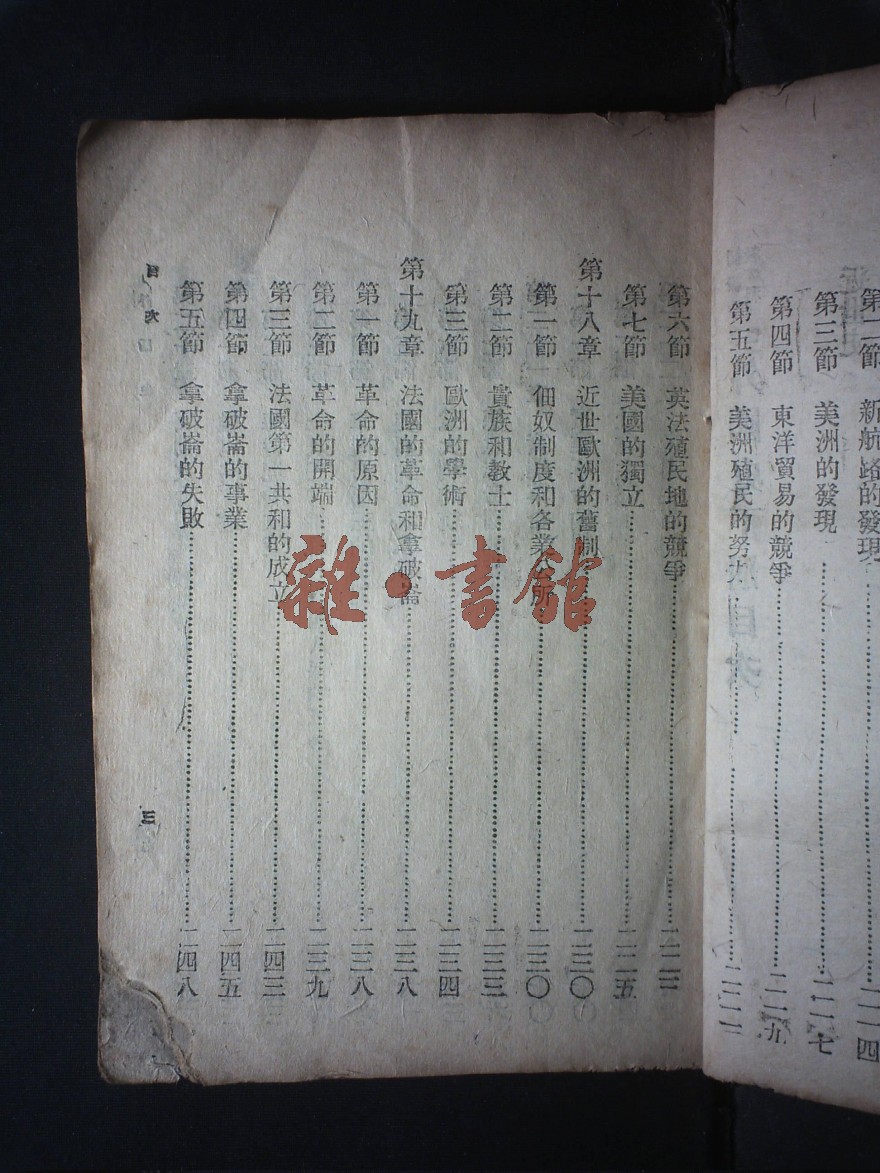 第二節 新航路的發現 二一四
第三節 美洲的發現 二一七
第四節 東洋貿易的競爭 二一九
第五節 美洲殖民的努力
第六節 英法殖民地的競爭
第七節 美國的獨立 二二五
第十八章 近世歐洲的舊制 二三〇
第一節 佃奴制度和各業公所 二三〇
第二節 貴族和教士 二三三
第三節 歐洲的學術 二三四
第十九章 法國的革命和拿破崙 二三八
第一節 革命的原因 二三八
第二節 革命的開端 二三九
第三節 法國第一共和的成立 二四三
第四節 拿破崙的事業 二四五
第五節 拿破崙的失敗 二四八
目次
三
雜·書館